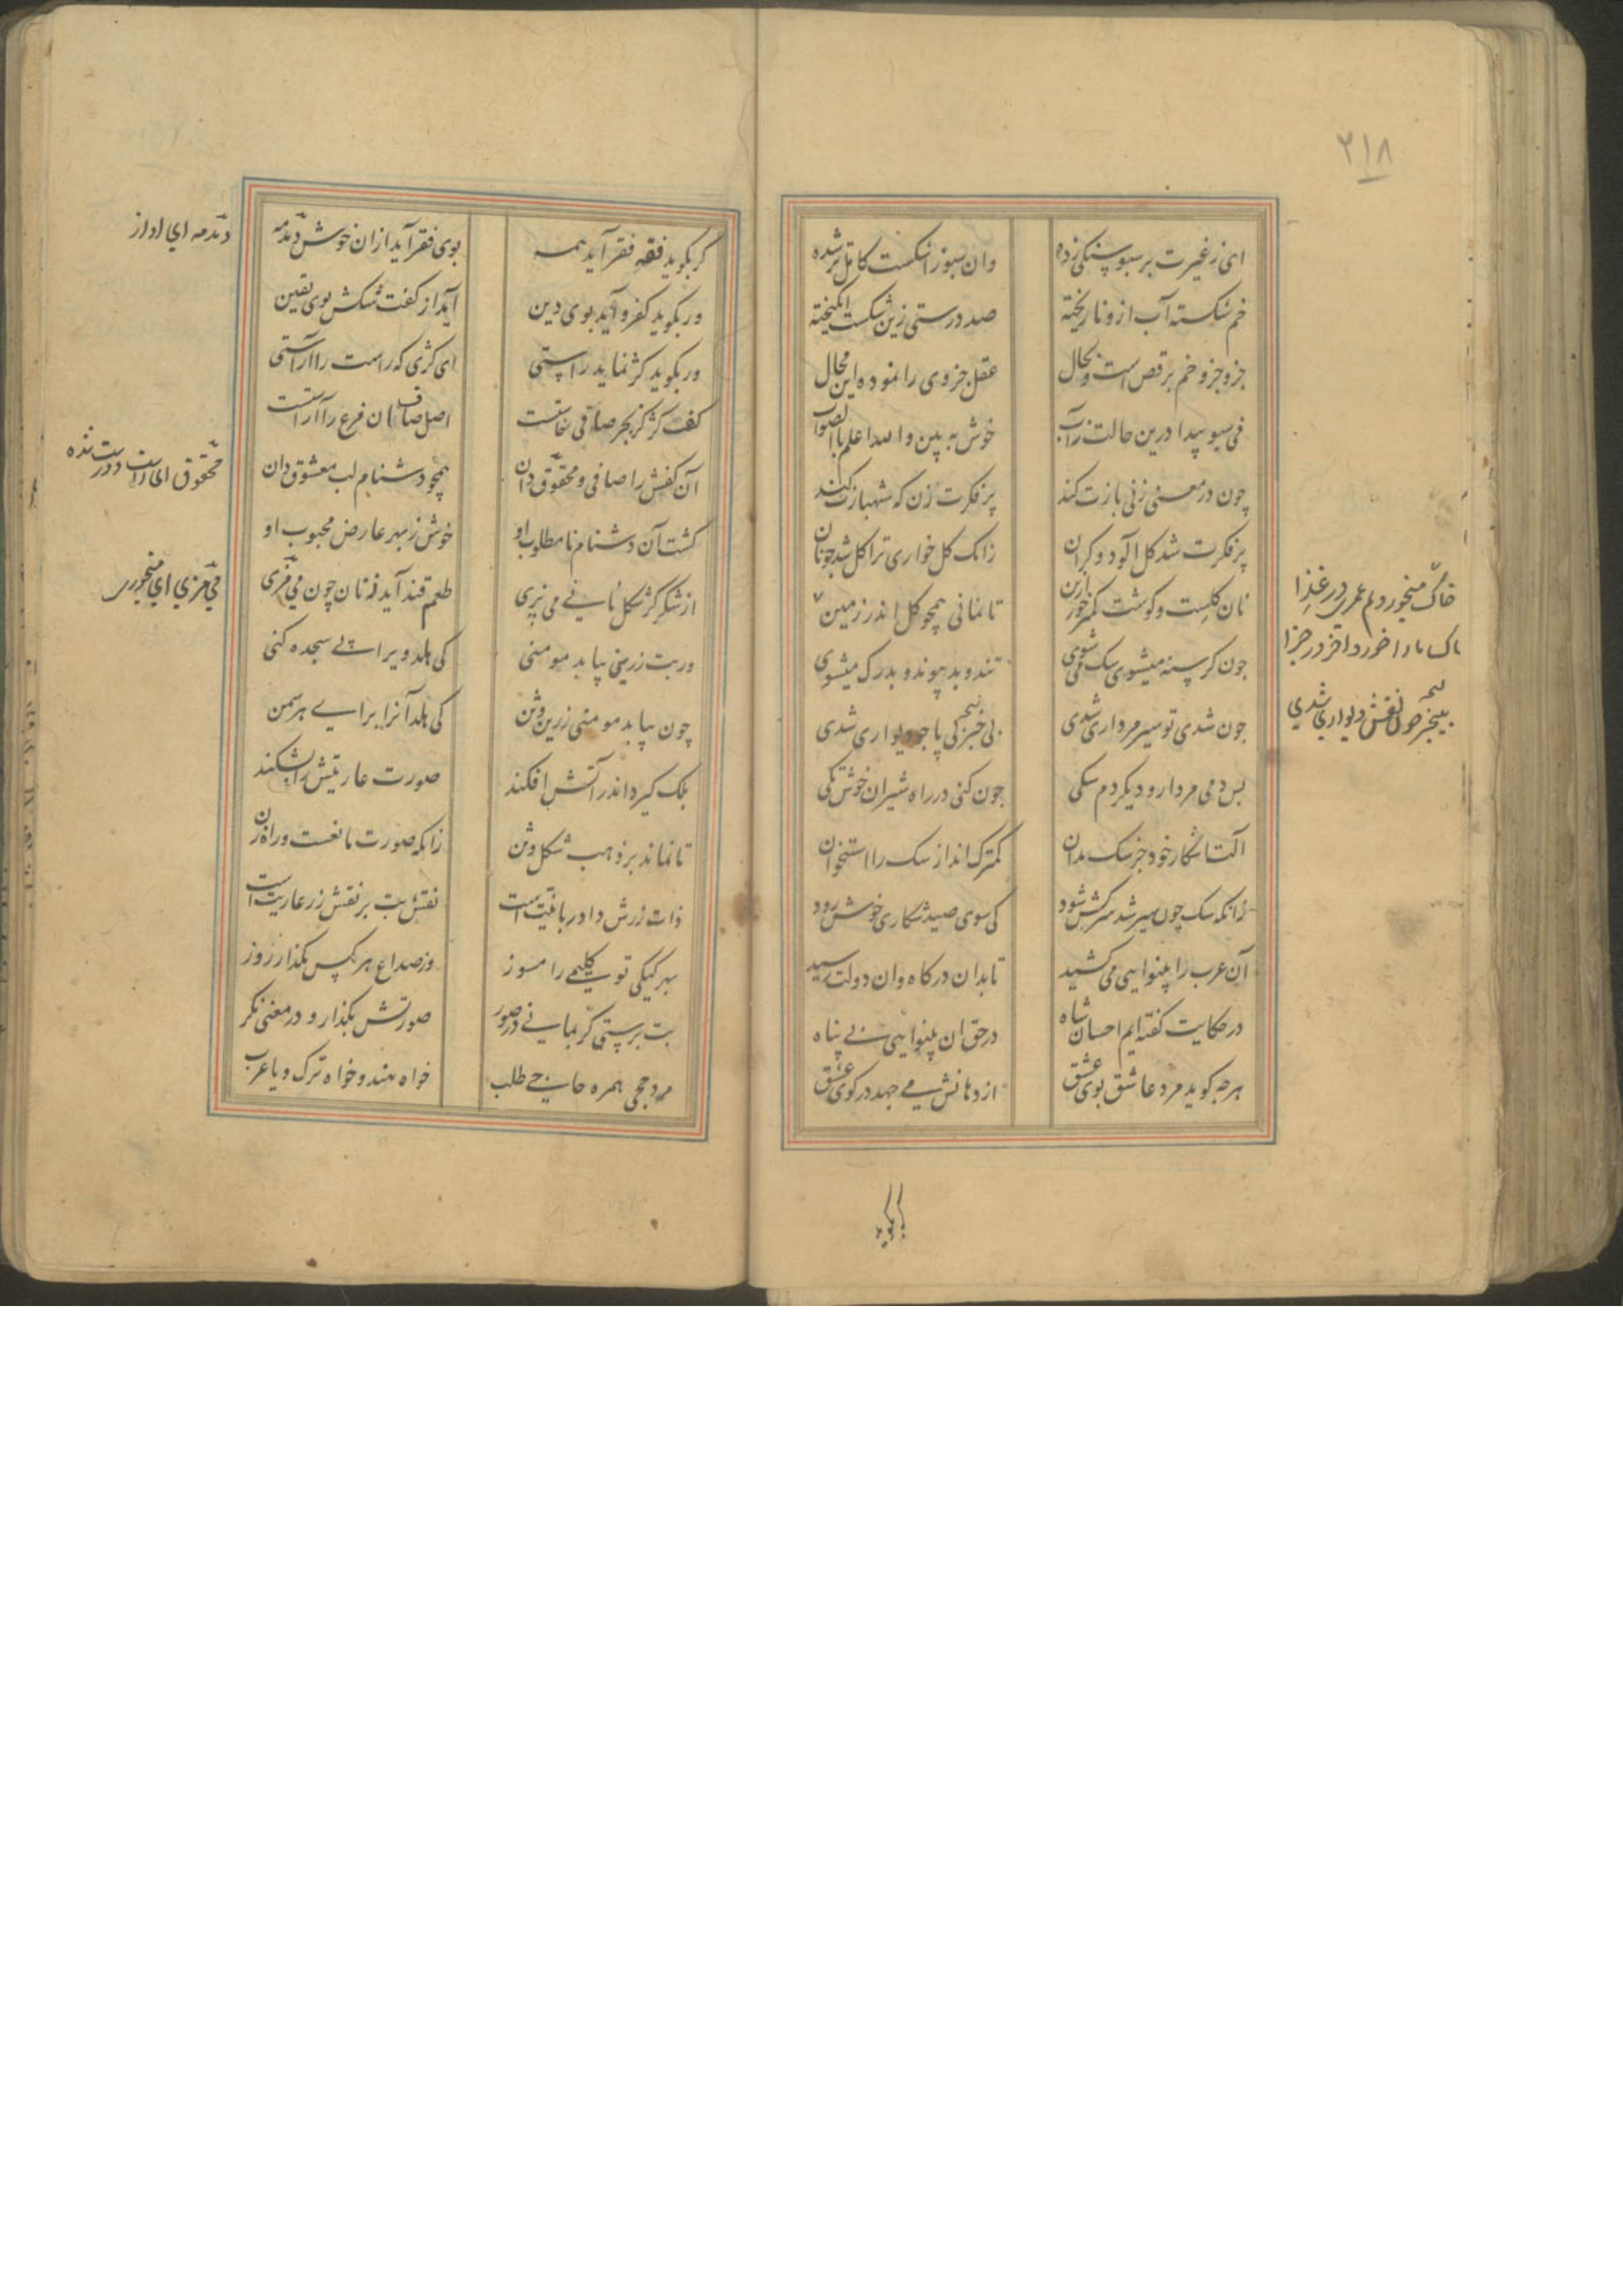 ۲۱۸
ای ز غیرت بر سبو سنکی زده
وان سبو ز اشکست کامل تر شده
خم شکسته آب ازو نا ریخته
صد درستی زین شکست انکیخته
جزو جزو خم برقص است و بحال
عقل جزوی را نموده این محال
نی سبو پیدا درین حالت نه آب
خوش به بین والله اعلم بالصواب
چون در معنی زنی بازت کند
پر فکرت زن که شهبازت کند
پر فکرت شد کل الود و کران
زانک کل خواری ترا کل شد جو نان
نان کلست و کوشت کمتر خور ازین
تا نمانی همچو کل اندر زمین
جون کرسنه میشوی سک می شوی
تند و بد پیوند و بدرک میشوی
جون شدی تو سیر مرداری شدی
بی خبر بی پا جو دیواری شدی
پس دمی مردار و دیکر دم سکی
جون کنی در راه شیران خوش تکی
الت اشکار خود جز سک مدان
کمترک انداز سک را استخوان
زانکه سک چون سیر شد سرکش شود
کی سوی صید شکاری خوش رود
آن عرب را بینوایی می کشید
تا بدان درکاه وان دولت رسید
در حکایت کفته ایم احسان شاه
در حق ان بینوایی بی پناه
هرجه کوید مرد عاشق بوی عشق
از دهانش می جهد در کوی عشق
خاک میخوردیم عمری در غذا
خاک ما را خورد اخر در جزا
بیخبر چون نقش دیواری شدی
کر بکوید
کر بکوید فقه فقر آید همه
بوی فقر آید ازان خوش دمدمه
ور بکوید کفر و آید بوی دین
آید از کفت شکش بوی یقین
ور بکوید کژ نماید راستی
ای کژی که راست را آراستی
کف کژ کز بحر صافی خاستست
اصل صاف ان فرع را آراستست
آن کفش را صافی و محقوق دان
همچو دشنام لب معشوق دان
کشت آن دشنام نامطلوب او
خوش ز بهر عارض محبوب او
از شکر کر شکل نانی می پزی
طعم قند آید نه نان چون می مزی
ور بت زرین بیابد مومنی
کی هلد ویرا پی سجده کنی
چون بیابد مومنی زرین وثن
کی هلد آنرا برای هر سمن
بلک کیرد اندر آتش افکند
صورت عاریتش را بشکند
تا نماند بر ذهب شکل وثن
زانکه صورت مانعست و راه زن
ذات زرش داد ربانیت است
نقش بت بر نقش زر عاریت است
بهر کیکی تو کلیمی را مسوز
وز صداع هر مکس مکذار روز
بت پرستی کر بمانی در صور
صورتش بکذار و در معنی نکر
مرد حجی همره حاجی طلب
خواه هندو خواه ترک و یا عرب
دمدمه ای اواز
محقوق ای راست و درست شده
می مزی ای میخوری